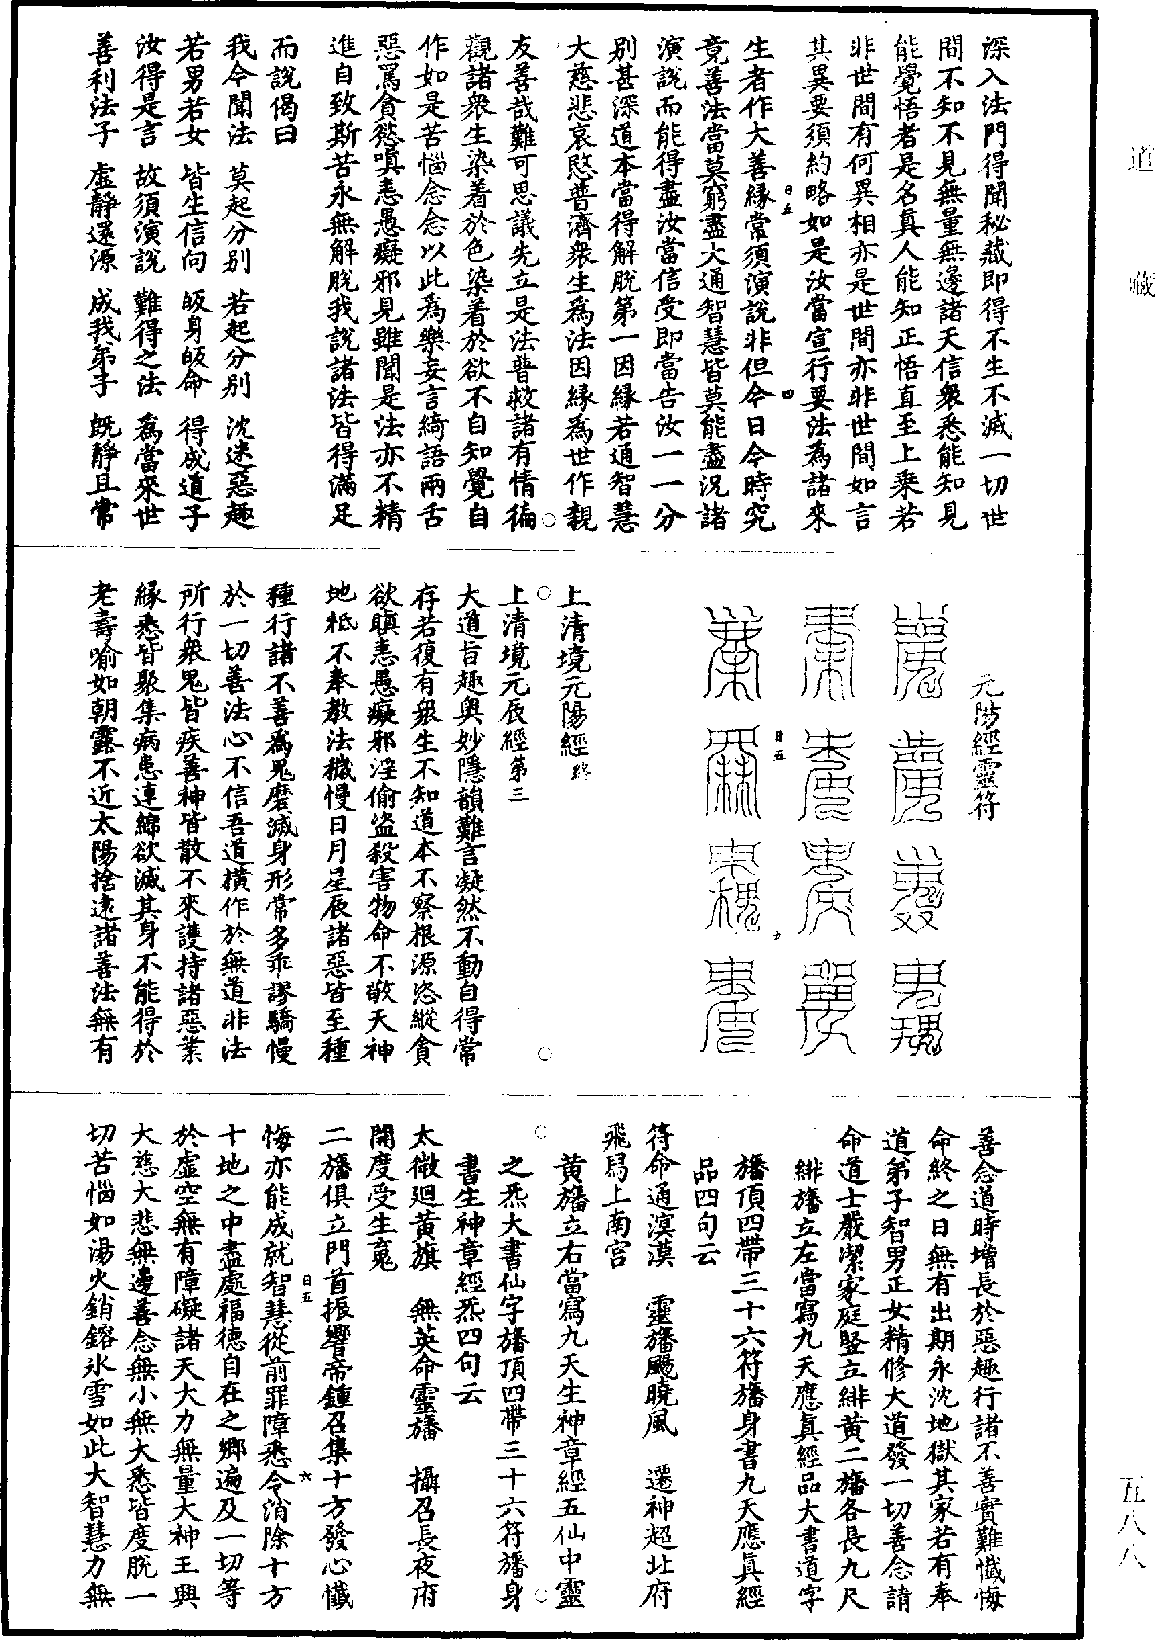 道藏
五八八
深入法門得聞秘藏即得不生不滅一切世
間不知不見無量無邊諸天信衆悉能知見
能覺悟者是名真人能知正悟直至上乘若
非世間有何異相亦是世間亦非世間如言
其異要須約略如是汝當宣行要法為諸來
生者作大善緣常須演說非但今日今時究
竟善法當莫窮盡大通智慧皆莫能盡況諸
演說而能得盡汝當信受即當告汝一一分
別甚深道本當得解脫第一因緣若通智慧
大慈悲哀愍普濟衆生為法因緣為世作親
友善哉難可思議先立是法普救諸有情徧
觀諸衆生染着於色染着於欲不自知覺自
作如是苦惱念念以此為樂妄言綺語兩舌
惡罵貪慾嗔恚愚癡邪見雖聞是法亦不精
進自致斯苦永無解脫我說諸法皆得滿足
而說偈曰
我今聞法　莫起分別　若起分別　沈迷惡趣
若男若女　皆生信向　皈身皈命　得成道子
汝得是言　故須演說　難得之法　為當來世
善利法子　虛靜還源　成我弟子　既靜且常
元陽經靈符
上清境元陽經終
上清境元辰經第三
大道旨趣奥妙隱韻難言凝然不動自得常
存若復有衆生不知道本不察根源恣縱貪
欲瞋恚愚癡邪淫偷盜殺害物命不敬天神
地祇不奉教法穢慢日月星辰諸惡皆至種
種行諸不善為鬼磨滅身形常多乖謬驕慢
於一切善法心不信吾道橫作於無道非法
所行衆鬼皆疾善神皆散不來護持諸惡業
緣悉皆聚集病患連綿欲滅其身不能得於
老壽喻如朝露不近太陽捨遠諸善法無有
善念道時增長於惡趣行諸不善實難懺悔
命終之日無有出期永沈地獄其家若有奉
道弟子智男正女精修大道發一切善念請
命道士嚴潔家庭竪立緋黃二旛各長九尺
緋旛立左當寫九天應真經品大書道字
旛頂四帶三十六符旛身書九天應真經
品四句云
符命通溟漠　靈旛颺曉風　遷神超北府
飛舄上南宫
黃旛立右當寫九天生神章經五仙中靈
之炁大書仙字旛頂四帶三十六符旛身
書生神章經炁四句云
太微迴黃旗　無英命靈旛　攝召長夜府
開度受生䰟
二旛俱立門首振響帝鍾召集十方發心懺
悔亦能成就智慧從前罪障悉令消除十方
十地之中盡處福德自在之鄉遍及一切等
於虛空無有障礙諸天大力無量大神王與
大慈大悲無邊善念無小無大悉皆度脫一
切苦惱如湯火銷鎔氷雪如此大智慧力無